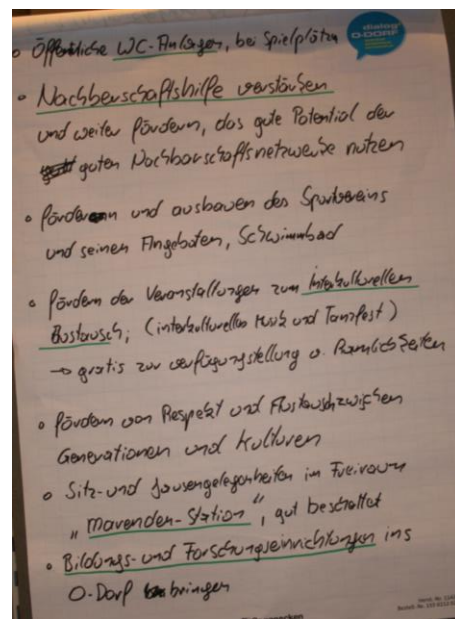 dialog
O-DORF
• Öffentliche WC-Anlagen, bei Spielplätzen
• Nachbarschaftshilfe verstärken
und weiter fördern, das gute Potential der
guten Nachbarschaftsnetzwerke nutzen
• fördern und ausbauen des Sportvereins
und seinen Angeboten, Schwimmbad
• fördern der Veranstaltungen zum Interkulturellen
Austausch, (interkulturelles Musik und Tanzfest)
→ gratis zur verfügungstellung v. Räumlichkeiten
• fördern von Respekt und Austausch zwischen
Generationen und Kulturen
• Sitz- und Jausengelegenheiten im Freiraum
"Marenden-Station", gut beschattet
• Bildungs- und Forschungseinrichtungen ins
O-Dorf bringen